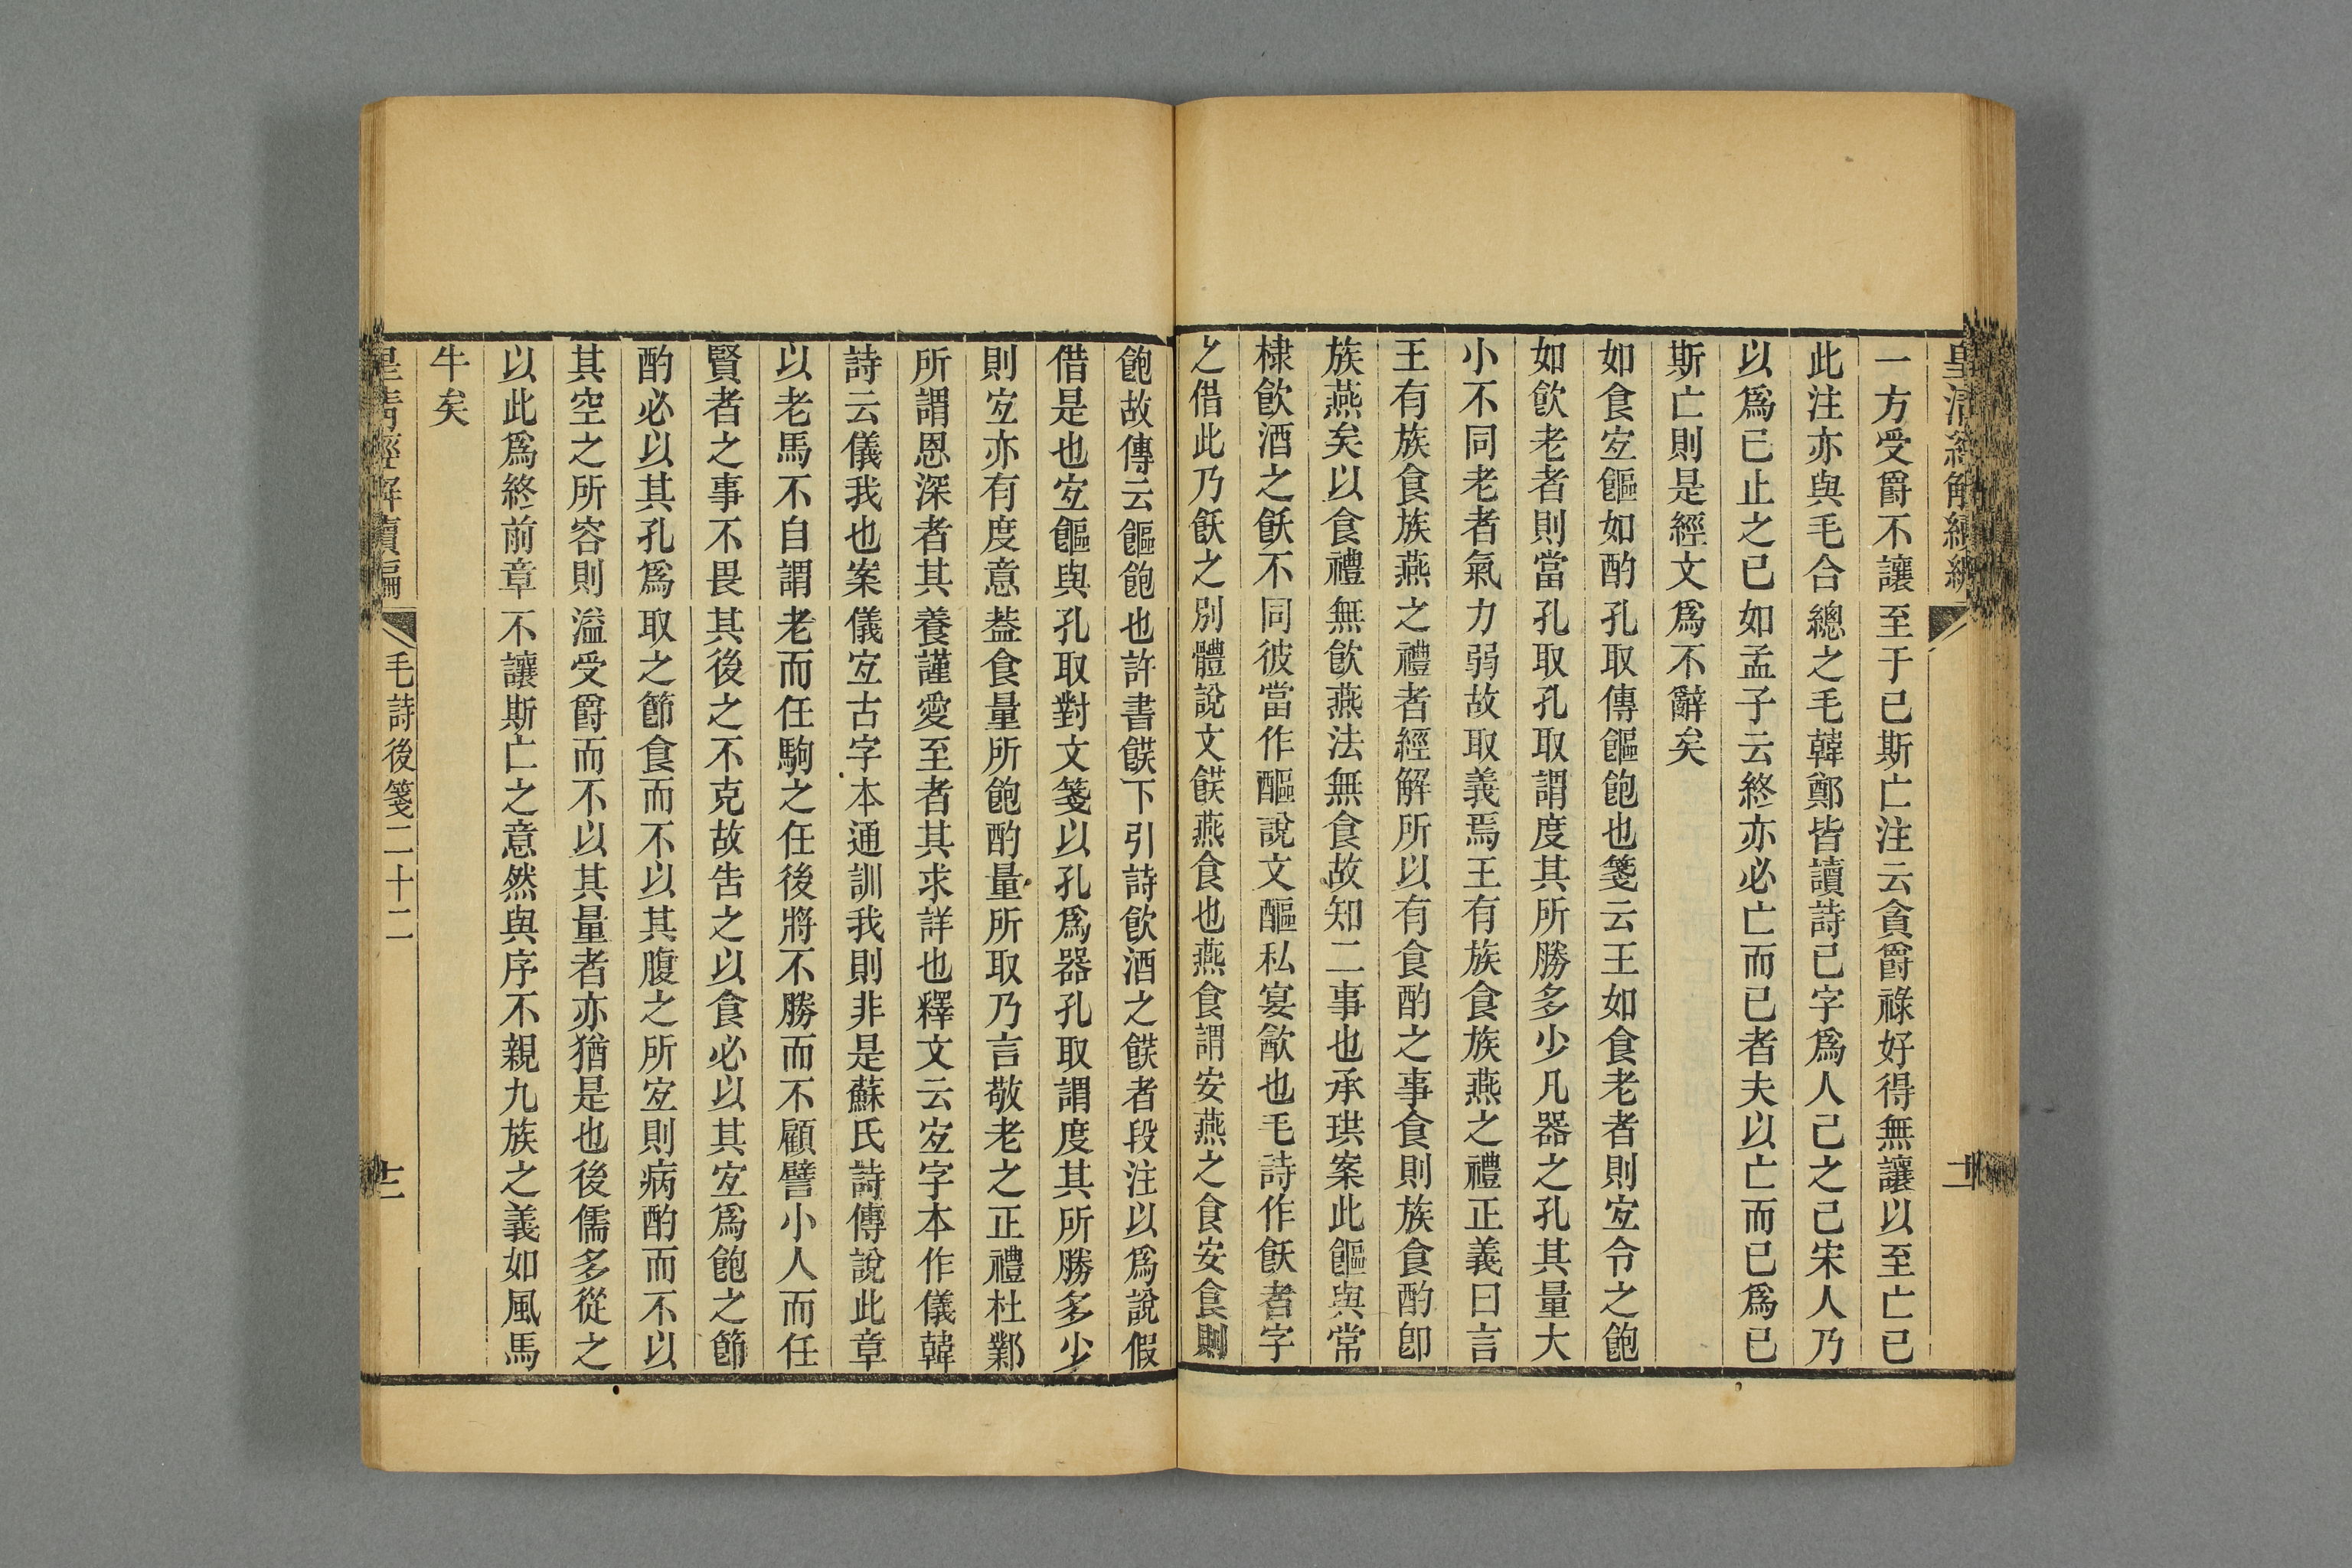 皇清經解續編
十一
一方受爵不讓至于已斯亡注云貪爵祿好得無讓以至亡已
此注亦與毛合總之毛韓鄭皆讀詩已字爲人己之己宋人乃
以爲已止之已如孟子云終亦必亡而已者夫以亡而已爲已
斯亡則是經文爲不辭矣
如食宐饇如酌孔取傳饇飽也箋云王如食老者則宐令之飽
如飮老者則當孔取孔取謂度其所勝多少凡器之孔其量大
小不同老者氣力弱故取義焉王有族食族燕之禮正義曰言
王有族食族燕之禮者經解所以有食酌之事食則族食酌卽
族燕矣以食禮無飮燕法無食故知二事也承珙案此饇與常
棣飮酒之飫不同彼當作醧說文醧私宴歈也毛詩作飫者字
之借此乃飫之別體說文䬽燕食也燕食謂安燕之食安食則
飽故傳云饇飽也許書䬽下引詩飮酒之䬽者段注以爲說假
借是也宐饇與孔取對文箋以孔爲器孔取謂度其所勝多少
則宐亦有度意葢食量所飽酌量所取乃言敬老之正禮杜鄴
所謂恩深者其養謹愛至者其求詳也釋文云宐字本作儀韓
詩云儀我也案儀宐古字本通訓我則非是蘇氏詩傳說此章
以老馬不自謂老而任駒之任後將不勝而不顧譬小人而任
賢者之事不畏其後之不克故告之以食必以其宐爲飽之節
酌必以其孔爲取之節食而不以其腹之所宐則病酌而不以
其空之所容則溢受爵而不以其量者亦猶是也後儒多從之
以此爲終前章不讓斯亡之意然與序不親九族之義如風馬
牛矣
皇清經解續編
毛詩後箋二十二
十二